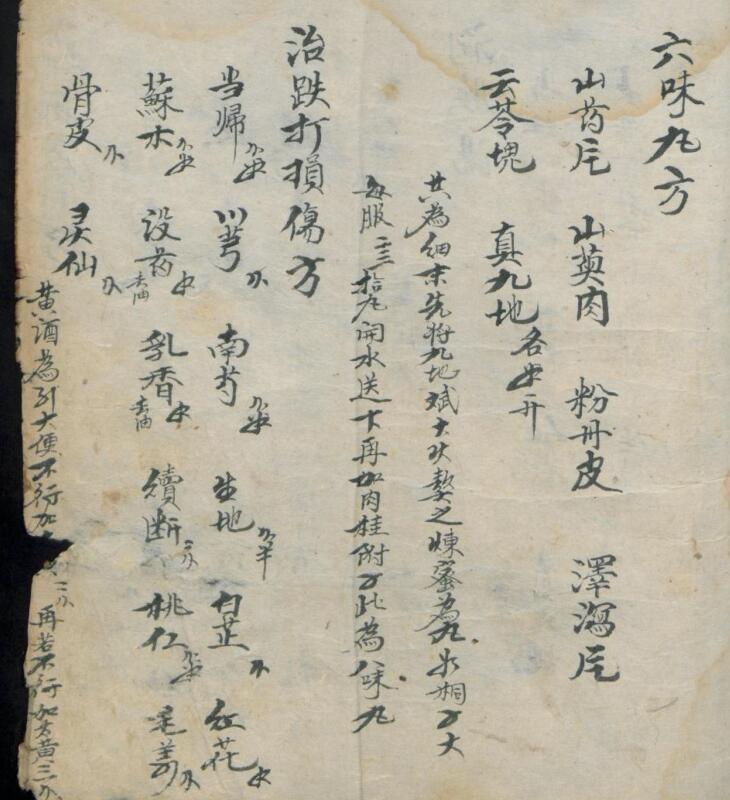 六味丸方
山药片 山萸肉 粉丹皮 澤瀉片
云苓塊 真九地 各
共為細末先将九地斌十次熬之煉蜜為丸如桐子大
每服二三拾丸開水送下再加肉桂附子此為八味丸
治跌打損傷方
当帰 川芎 南芍 生地 白芷 红花
蘇木 设药 去油 乳香 去油 續断 桃仁 羌
骨皮 灵仙
黄酒為引大便不行加 再若不行加大黄三